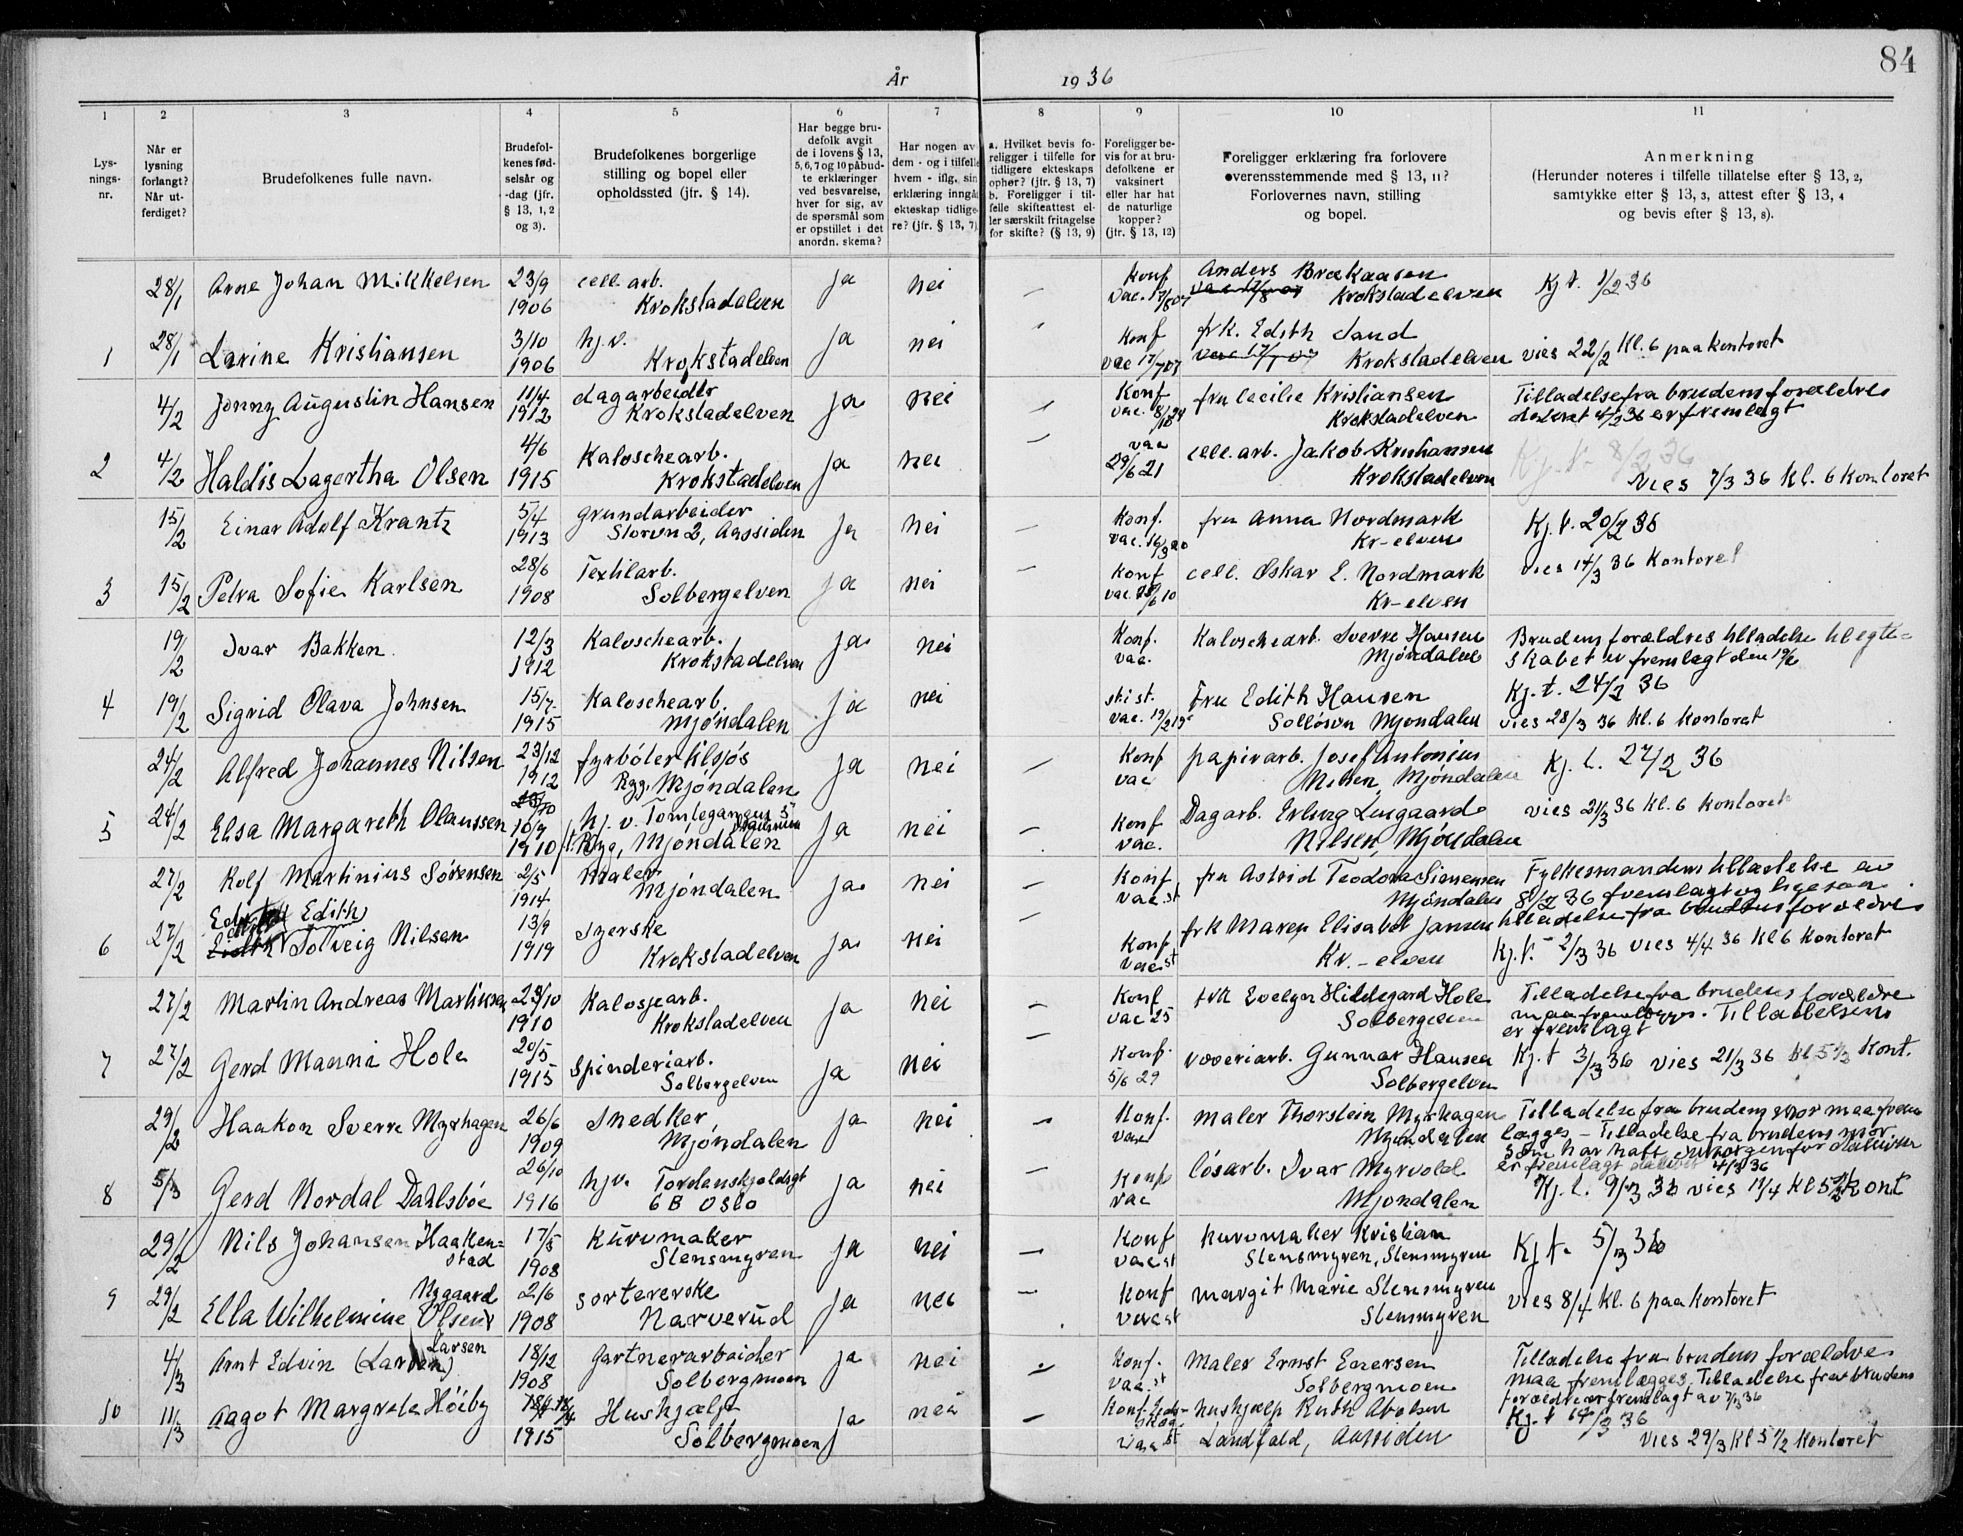 84
År 1936
1 2 3 4 5 6 7 8 9 10 11
Lys-
nings-
nr.
Når er
lysning
forlangt?
Når ut-
ferdiget?
Brudefolkenes fulle navn.
Brudefol-
kenes fød-
selsår og
-dag (jfr.
§ 13, 1, 2
og 3).
Brudefolkenes borgerlige
stilling og bopel eller
opholdssted (jfr. § 14).
Har begge bru-
defolk avgit
de i lovens § 13,
5, 6, 7 og 10 påbud-
te erklæringer
ved besvarelse,
hver for sig, av
de spørsmål som
er opstillet i det
anordn. skema?
Har nogen av
dem - og i tilfelle
hvem - iflg. sin
erklæring inngå
ekteskap tidlige-
re? (jfr. § 13, 7)
a. Hvilket bevis fo-
religger i tilfelle for
tidligere ekteskaps
ophør? (jfr. § 13, 7)
b. Foreligger i til-
felle skifteattest el-
ler særskilt fritagelse
for skifte? (§ 13, 9)
Foreligger be-
vis for at bru-
defolkene er
vaksinert
eller har hat
de naturlige
kopper?
(jfr. § 13, 12)
Foreligger erklæring fra forlovere
overensstemmende med § 13, 11?
Forlovernes navn, stilling
og bopel.
Anmerkning
(Herunder noteres i tilfelle tillatelse efter § 13, 2,
samtykke efter § 13, 3, attest efter § 13, 4
og bevis efter § 13, 8).
28/1 Arne Johan Mikkelsen 23/9 1906 cell. arb. Krokstadelven ja nei — Konf vac. 17/8 07 Anders Brækaasen Krokstadelven Kj. t. 1/2 36
1 28/1 Larine Kristiansen 3/10 1906 hj. v. Krokstadelven ja nei — Konf vac 17/7 07 frk. Edith Sand Krokstadelven vies 22/2 kl. 6 paa kontoret
4/2 Jonny Augustin Hansen 11/4 1912 dagarbeider Krokstadelven ja nei — Konf vac. 8/10 24 fru Cecilie Kristiansen Krokstadelven Tilladelse fra brudens forældre
datert 4/2 36 er fremlagt
2 4/2 Haldis Lagertha Olsen 4/6 1915 Kaloschearb. Krokstadelven ja nei — vac 29/6 21 cell. arb. Jakob Kristiansen Krokstadelven Kj. t. 8/2 36
vies 7/3 36 kl. 6 Kontoret
15/2 Einar Adolf Krantz 5/4 1913 grundarbeider Storvn 2, Aassiden ja nei — Konf. vac. 16/3 20 fru Anna Nordmark Kr-elven Kj. t. 20/2 36
3 15/2 Petra Sofie Karlsen 28/6 1908 Textilarb. Solbergelven ja nei — Konf vac. 6 10 cell. Oskar E. Nordmark Kr-elven vies 14/3 36 Kontoret
19/2 Ivar Bakken. 12/3 1912 Kaloschearb. Krokstadelven ja nei Konf. vac. Kaloschearb. Sverre Hansen Mjøndalen Brudens forældres tilladelse til egte=
skabet er fremlagt den 19/2
4 19/2 Sigrid Olava Johnsen 15/7 1915 Kaloschearb. Mjøndalen ja nei vac. 19/2 15 Fru Edith Hansen Mjøndalen Kj. t. 24/2 36
vies 28/3 36 kl. 6 kontoret
24/2 Alfred Johannes Nilsen 23/12 1912 fyrbøter tilsjøs Rygg. Mjøndalen ja nei — Konf vac papirarb. Josef Antonius Nilsen, Mjøndalen Kj. t. 27/2 36
5 24/2 Elsa Margareth Olaussen 10/7 1910 hj. v. Rygg, Mjøndalen ja nei Konf vac. Dagarb. Erling Lusgaard Nilsen, Mjøndalen vies 21/3 36 kl. 6 kontoret
27/2 Rolf Martinius Sørensen 2/5 1914 Maler Mjøndalen ja nei — Konf vac. st fru Astrid Teodora Simensen Mjøndalen Fylkesmandens tilladelse av
8/2 36 fremlagt og ligesaa
tilladelse fra brudens forældre
6 27/2 Edith Solveig Nilsen 13/9 1919 Syerske Krokstadelven ja nei — Konf vac st frk Maren Elisabet Jansen Kr.-elven Kj. t. 2/3 36 vies 4/4 36 kl 6 kontoret
27/2 Martin Andreas Martinsen 23/10 1910 Kalosjearb. Krokstadelven ja nei — Konf vac 25 frk Evelyn Hildegard Hole Solbergelven Tilladelse fra brudens forældre
maa fremlægges. Tilladelsen
er fremlagt
7 27/2 Gerd Manni Hole 20/5 1915 Spinderiarb. Solbergelven ja nei — Konf. 5/6 29 væveriarb. Gunnar Hansen Solbergelven Kj. t 3/3 36 vies 21/3 36 kl 5 1/2 Kont.
29/2 Haakon Sverre Myrhagen 26/6 1909 Snedker, Mjøndalen ja nei — Konf. vac maler Thorstein Myrhagen Mjøndalen Tilladelse fra brudens mor maa frem
lægges — Tilladelse fra brudens mor
som har hatt omsorgen for datteren
er fremlagt datert 4/3 36
8 5/3 Gerd Nordal Dahlsbøe 26/10 1916 hjv. Tordenskjoldsgt 6 B Oslo ja nei — Konf vac løsarb. Ivar Myrvold Mjøndalen Kj. t. 9/3 36 vies 11/4 kl 5 1/2 Kont
29/2 Nils Johansen Haaken=
stad 17/5 1908 Kurvmaker Stensmyren ja nei — Konf vac st kurvmaker Kristian Stensmyren, Stensmyren Kj t. 5/3 36
9 29/2 Ella Wilhelmine Nygaard Olsen 2/6 1908 sortererske Narverud ja nei — Konf vac st Margit Marie Stensmyren Stensmyren vies 8/4 kl. 6 paa kontoret
4/3 Arnt Edvin (Larsen) Larsen 18/12 1908 Gartnerarbeider Solbergmoen ja nei — Konf. vac. st Maler Ernst Enersen Solbergmoen Tilladelse fra brudens forældre
maa fremlægges. Tilladelse fra brudens
forældre er fremlagt av 7/3 36
10 11/3 Aagot Margrete Høiby 1915 Hushjælp Solbergmoen ja nei — Konf. vac st hushjælp Ruth Abelsen Landfald, Aassiden Kj. t 14/3 36
vies 29/3 kl 5 1/2 kontoret